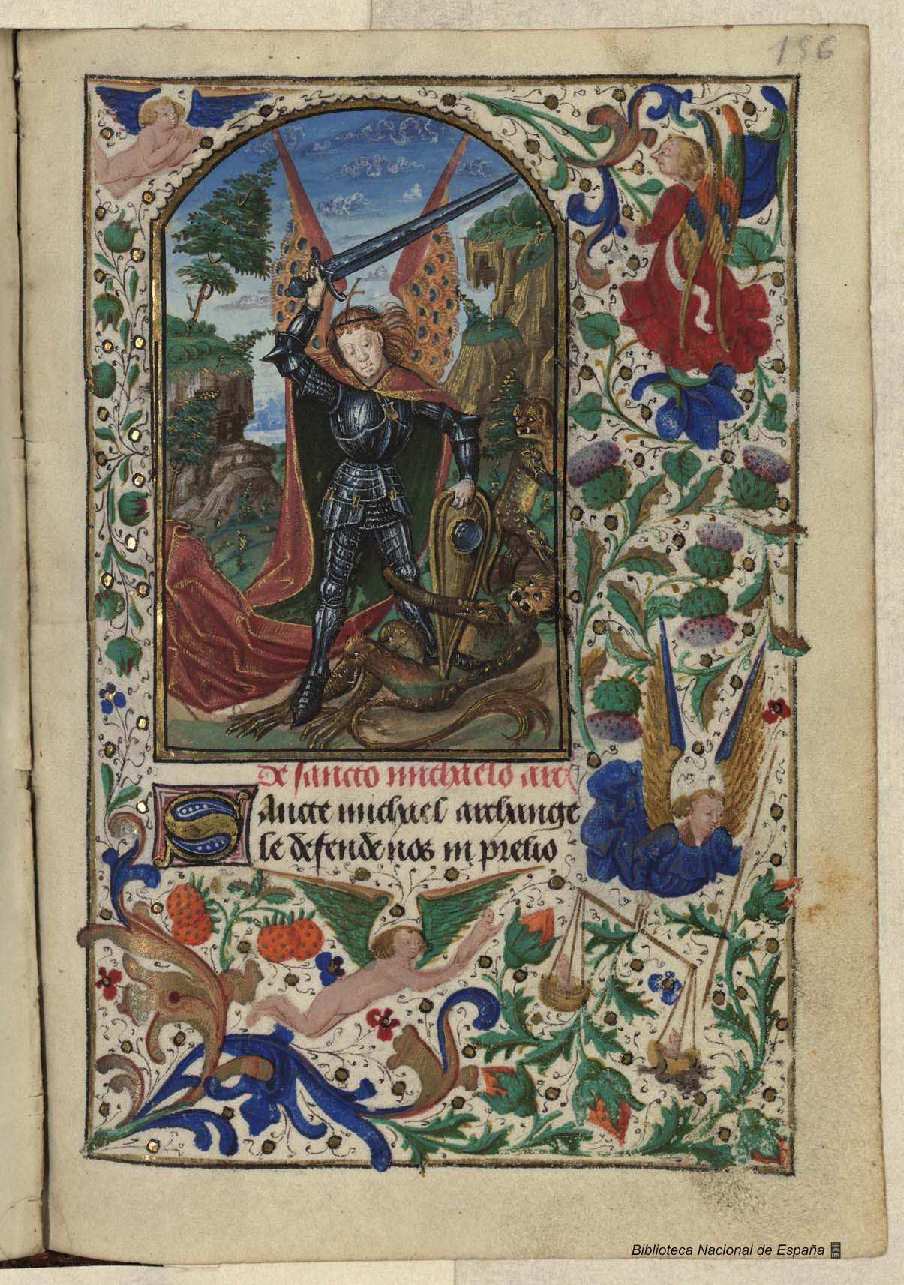 156
De sancto michaelo arc
Sancte michael archange
le defende nos in prelio
Biblioteca Nacional de España